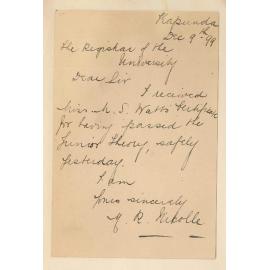 Kapunda
Dec 9th 99
The Registrar of the
University
Dear Sir
I received
Miss M. S. Watts Certificate
for having passed the
Junior Theory, safely
yesterday.
I am
Yours sincerely
R. Nicolle